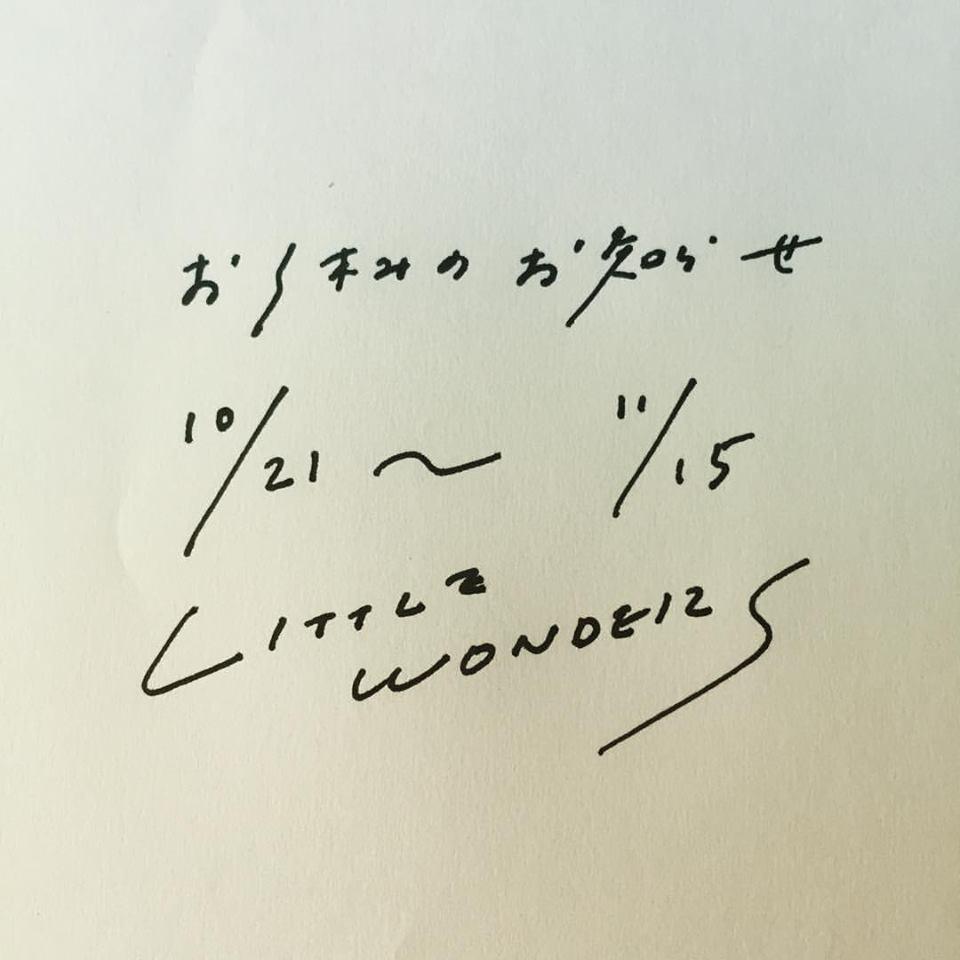 お休みのお知らせ
10/21〜11/15
LITTLE
WONDERS